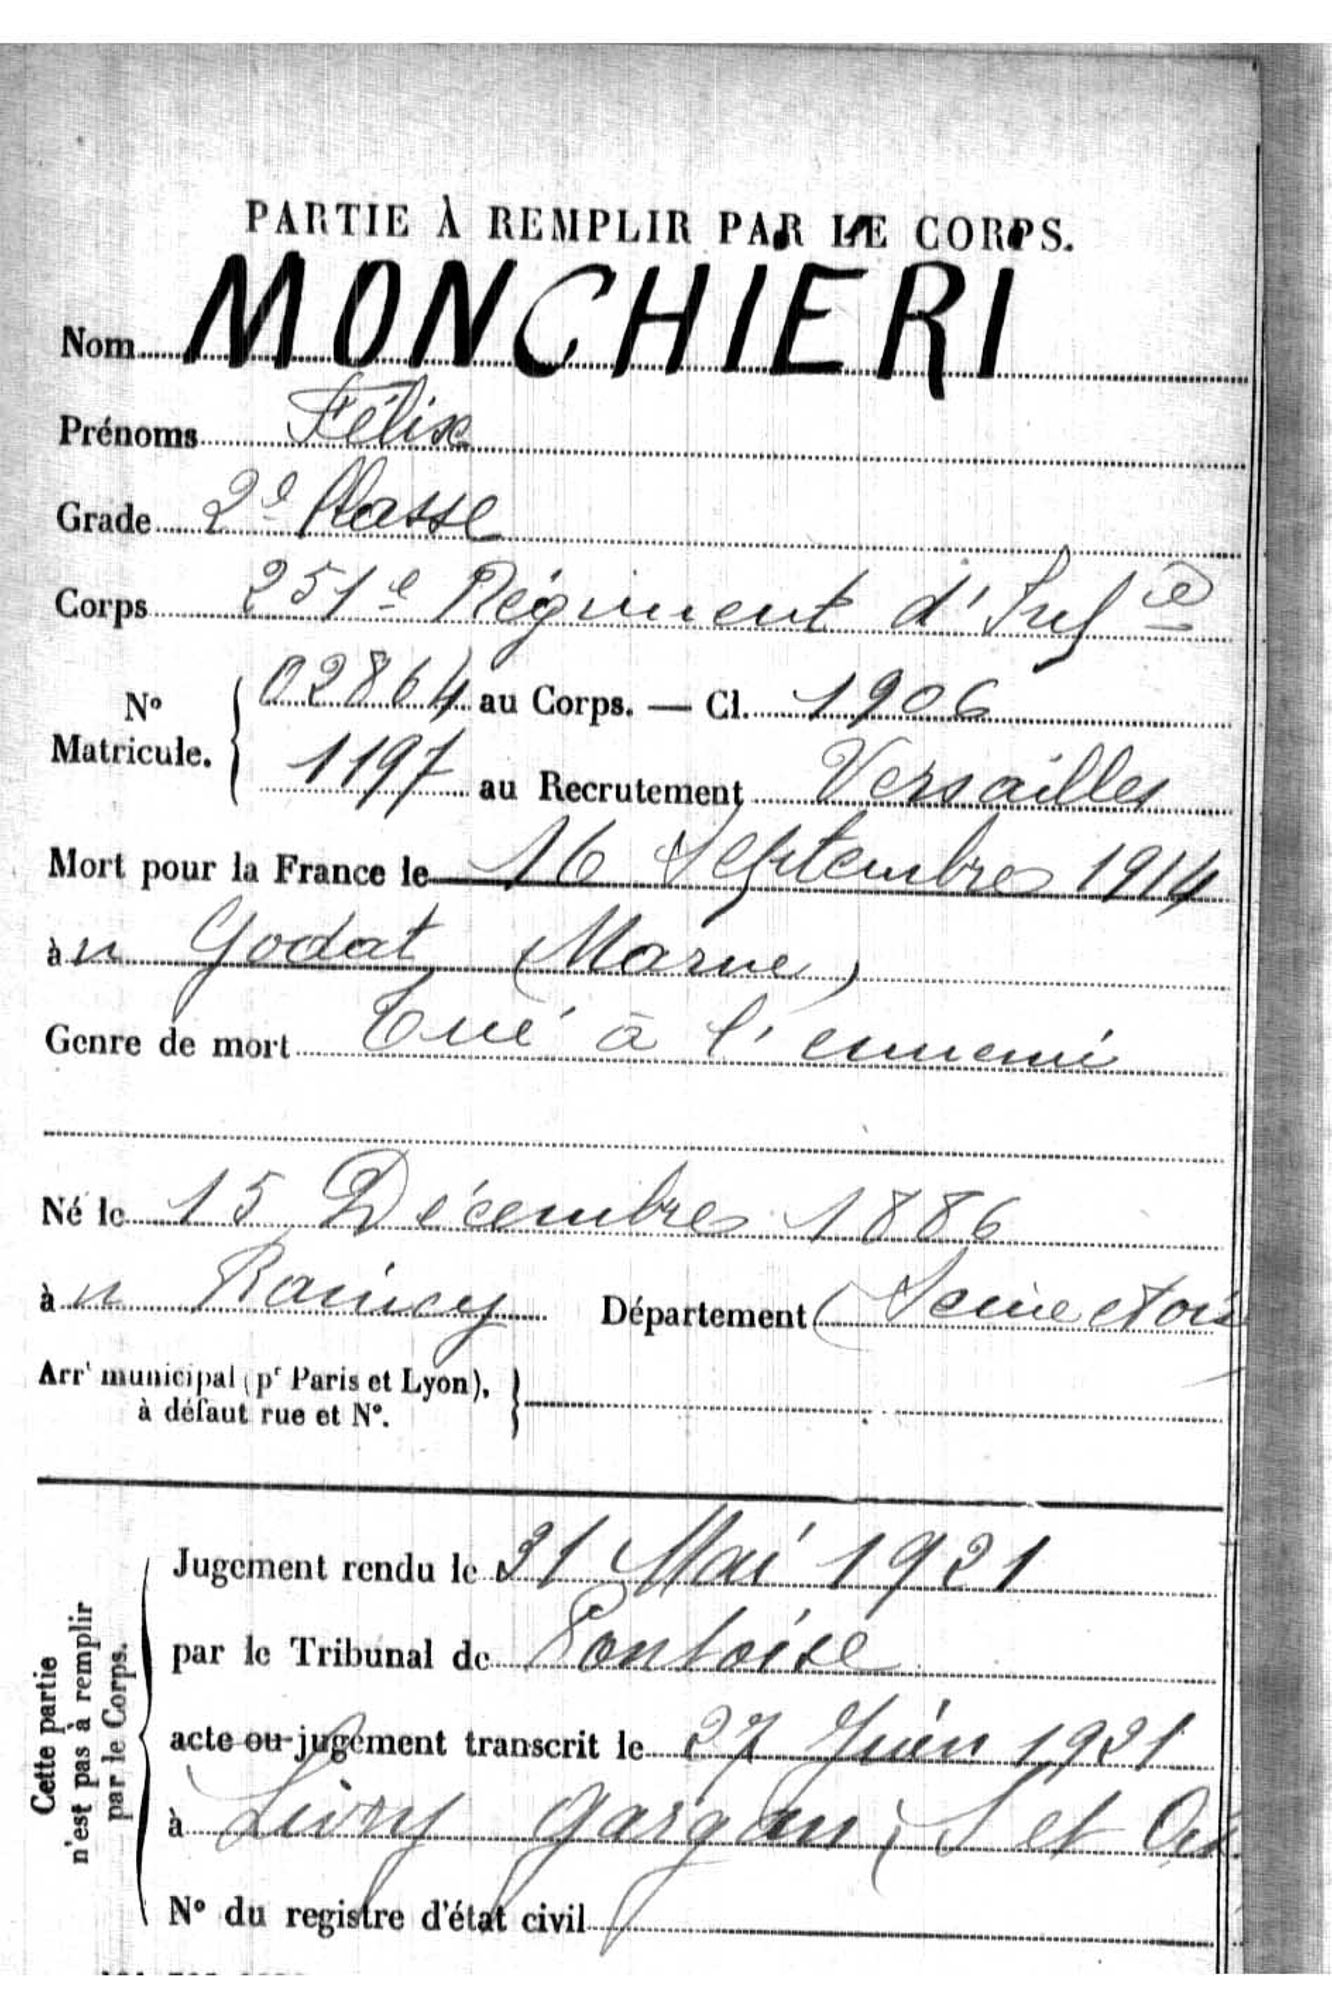 PARTIE À REMPLIR PAR LE CORPS.
Nom MONCHIERI
Prénoms Félix
Grade 2e Classe
Corps 251e Régiment d'Infie
No Matricule. 02864 au Corps. — Cl. 1906
1197 au Recrutement Versailles
Mort pour la France le 16 Septembre 1914
à u Godat (Marne)
Genre de mort Tué à l'ennemi
Né le 15 Décembre 1886
à u Raincy Département (Seine et Ois
Arrt municipal (pr Paris et Lyon),
à défaut rue et No.
Cette partie
n'est pas à remplir
par le Corps.
Jugement rendu le 31 Mai 1921
par le Tribunal de Pontoise
acte ou jugement transcrit le 27 Juin 1921
à Livry Gargan (S et Ois
No du registre d'état civil